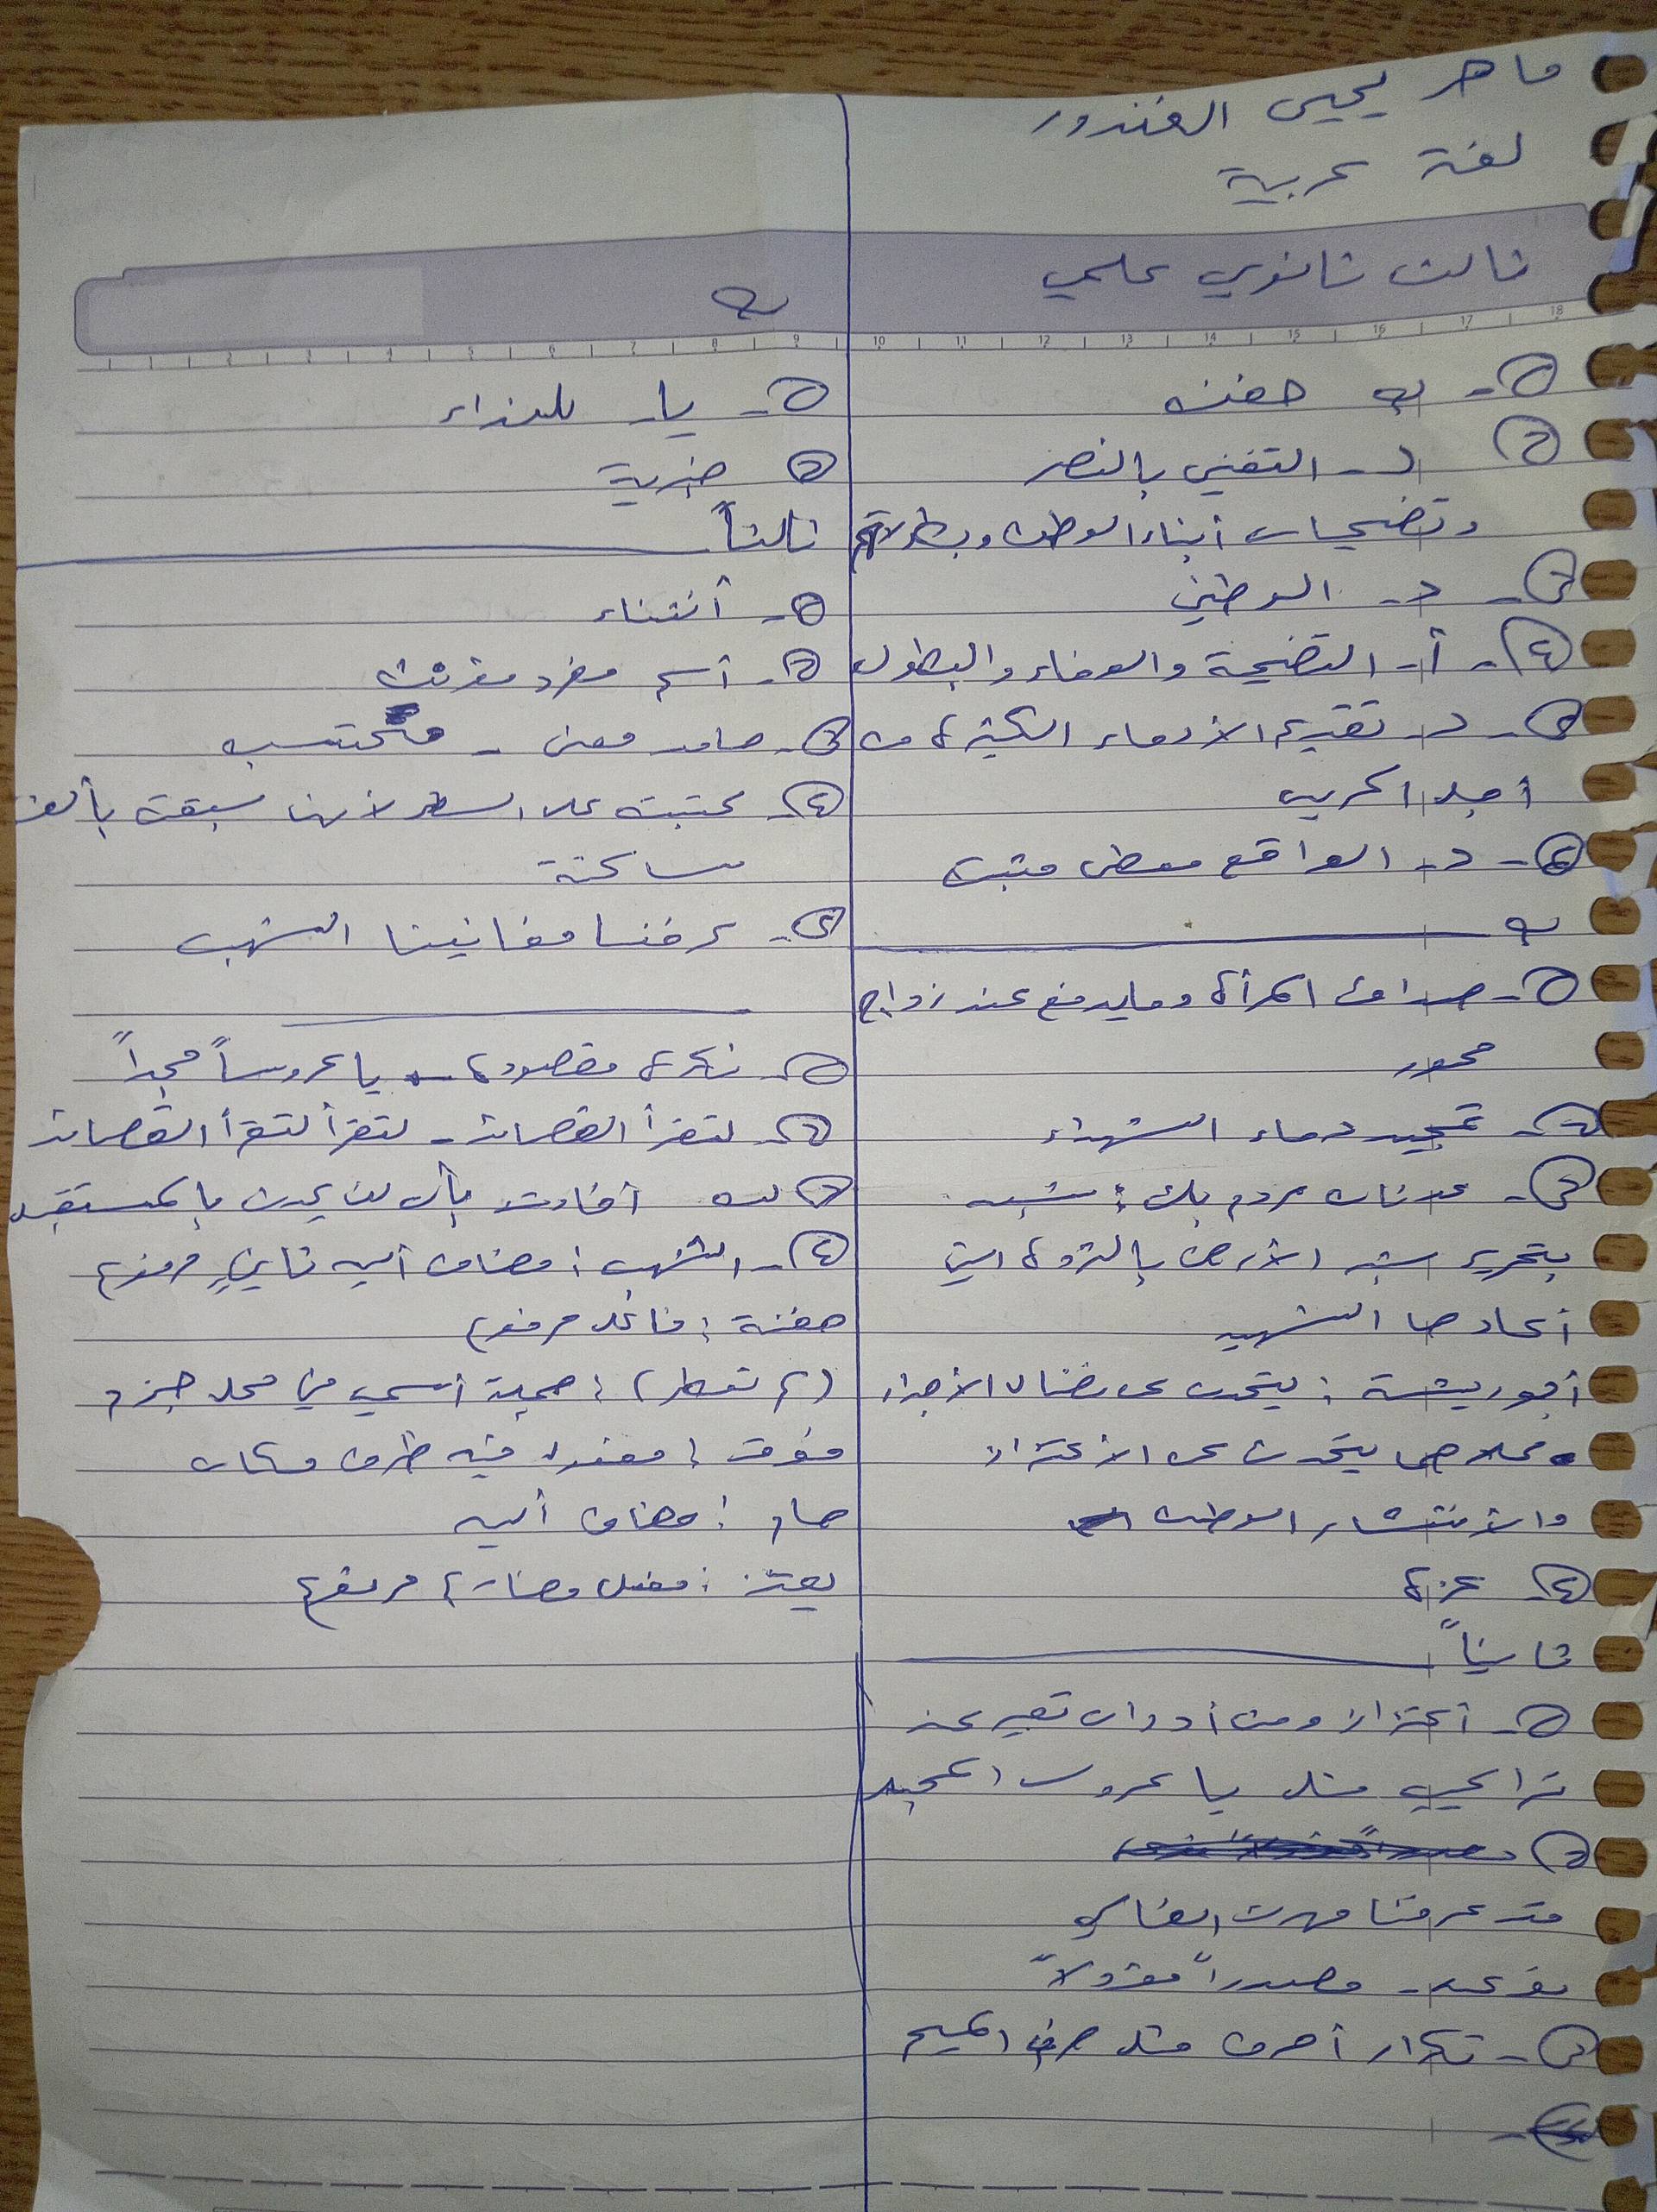 ماهر يحيى الغندور
لغة عربية
ثالث ثانوي علمي
١- ب حفنة
٢ د- التغني بالنصر
وتضحيات أبناء الوطن وبطولاتهم
٣- د- الوطني
٤- أ- التضحية والوفاء والبطول
٥- د- تقديم الأدماء الكثيرة من
أجل الحرية
٦- د- الواقع معطى مثبت
ب
١- صداق المرأة وما يدفع عند زواج
محور
٢- تمجيد دماء الشهداء
٣- عدنان مردم بك: شبه
بتحرير شبه الأرض بالثروة التي
أعادها الشهيد
أبو ريشة: يتحدث عن نضال الأجداد
يتحدث عن الأعتزاز
والأنتشار الوطن
٤- عزة
ثانياً
١- أعتزاز ومن أدوات تعبير عنه
تراكيب مثل يا عروس المجد
٢
قد عرفنا مهرك الغالي
نوعه- مصدراً مؤولاً
٣- تكرار أحرف مثل حرف الميم
ب
١- يا- للنداء
٢ خبرية
ثالثاً
١- أنتناء
٢- أسم مفرد مؤنث
٣- صامد معن -
٤- كتبت على السطر لأنها سبقت بألف
ساكنة
٥- عرفنا مغانينا الشهب
١- نكرة مقصودة - يا عروساً مجداً
٢- لتقرأ القصائد - لتقرأ لتقرأ القصائد
٣ لن أفادت بأن لن يحدث بالمستقبل
٤- الشهب: مضاف أليه ثاني مرفوع
حفنة: فاعل مرفوع
(لم تعطر): جملة أسمي في محل جزم
فوق: مفعول فيه ظرف مكان
هام: مضاف أليه
يعتز: فعل مضارع مرفوع